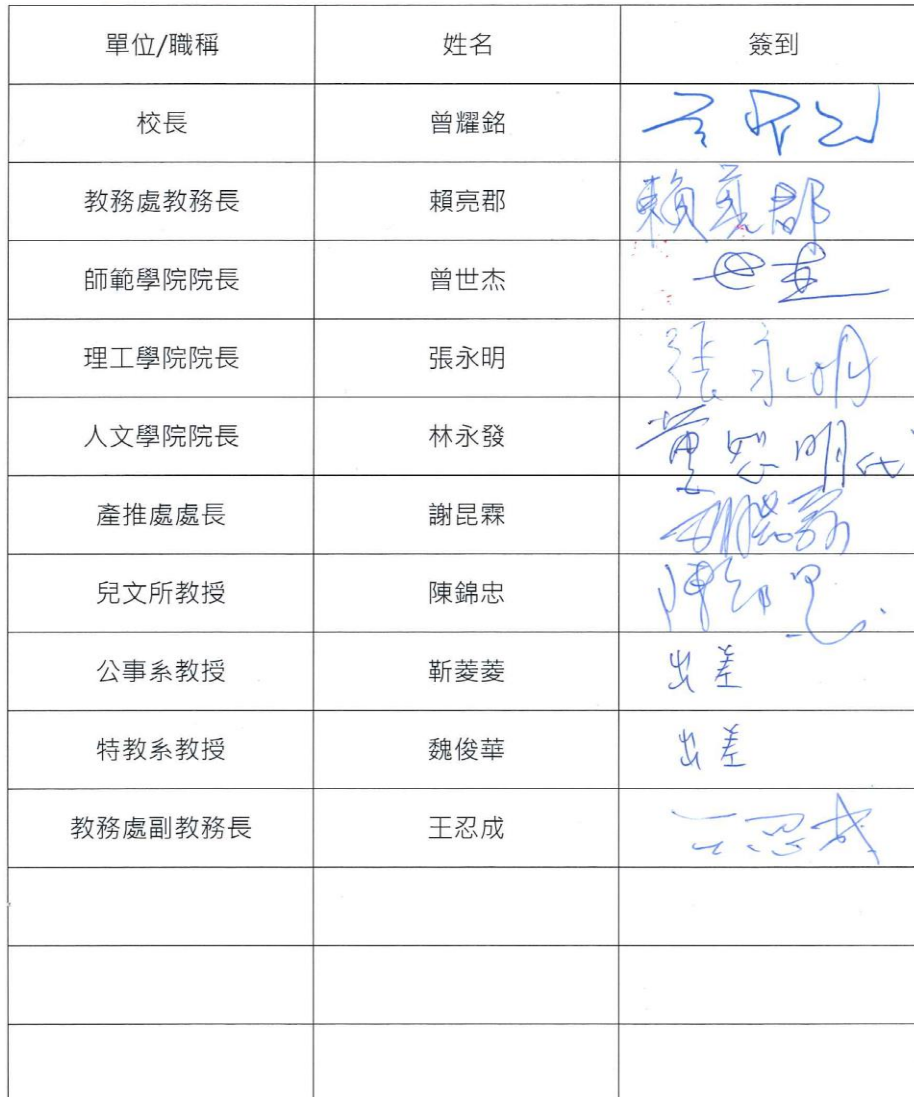 單位/職稱 姓名 簽到
校長 曾耀銘
教務處教務長 賴亮郡 賴亮郡
師範學院院長 曾世杰
理工學院院長 張永明 張永明
人文學院院長 林永發 董恕明代
產推處處長 謝昆霖
兒文所教授 陳錦忠 陳錦忠
公事系教授 靳菱菱 出差
特教系教授 魏俊華 出差
教務處副教務長 王忍成 王忍成